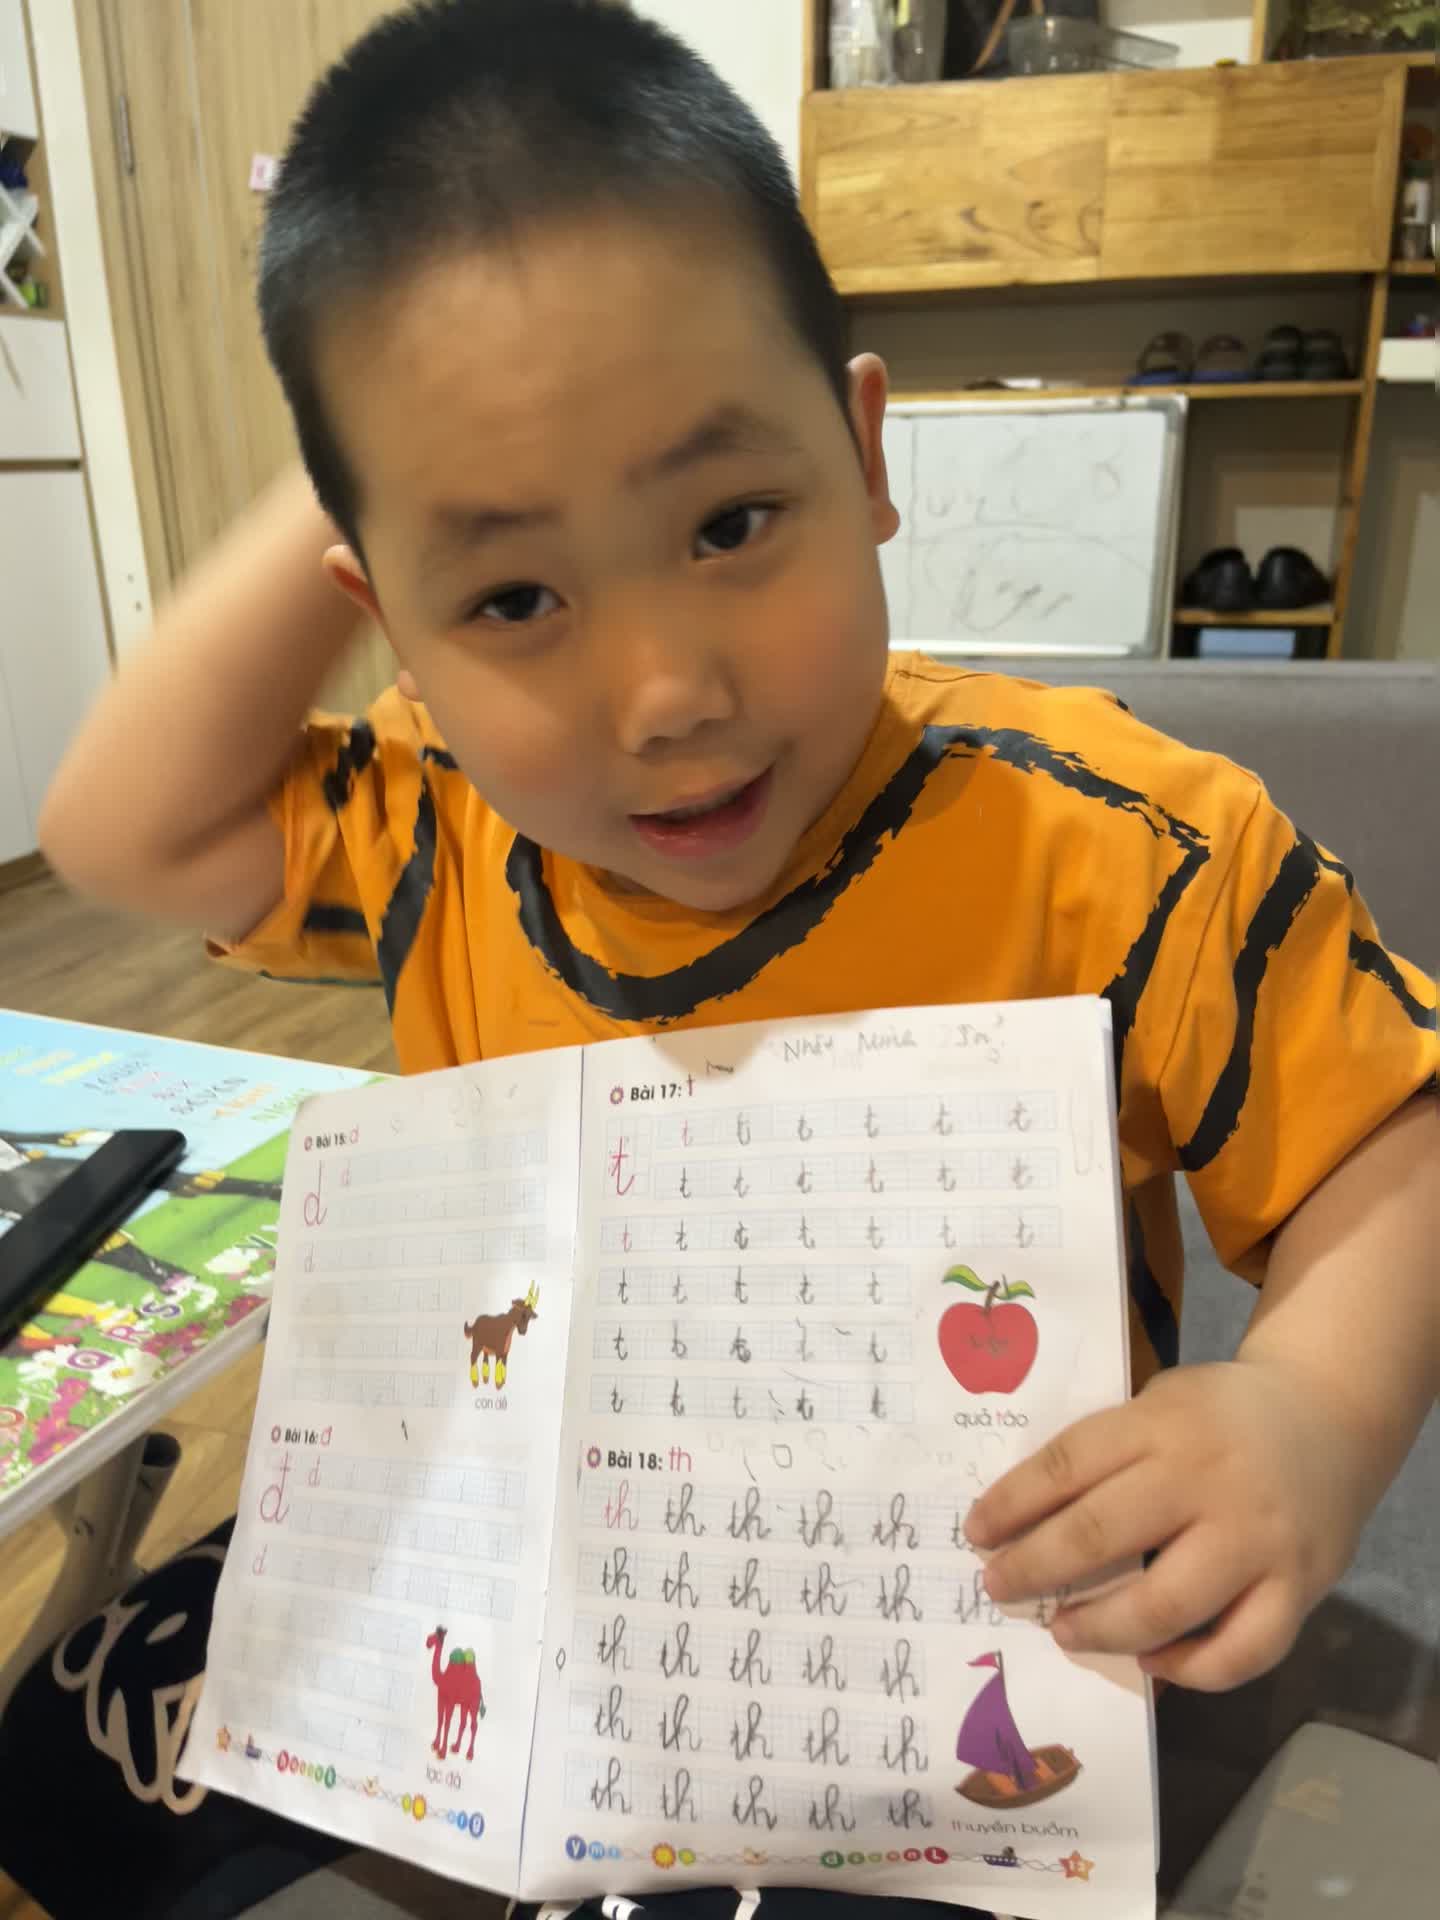 FOUR
SIX
SEVEN
Bài 15: d
d d
d
con dê
Bài 16: đ
đ đ
đ
lạc đà
Nhật Minh
Bài 17: t
t t t t t t t
t t t t t t
t t t t t t t
t t t t t
t t t t t
t t t t t
quả táo
Bài 18: th
th th th th th
th th th th th th th
th th th th th
th th th th th
th th th th th
thuyền buồm
13